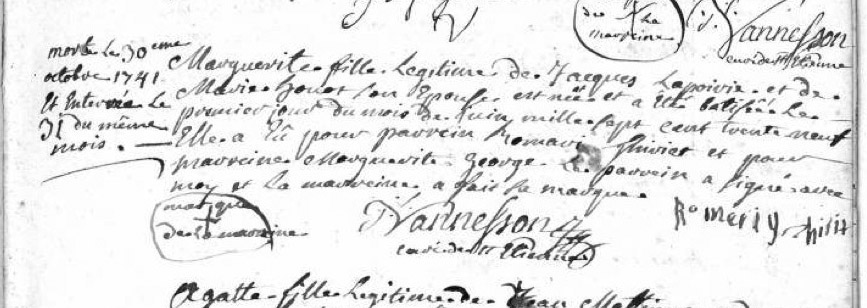 de + La
marreine
J. Vannesson
curé de st Etienne
morte Le 30eme
octobre 1741.
Et Enterrée Le
31 du même
mois.
Marguerite fille Legitime de Jacques Lapoirie et de
Marie son Epouse est née et a été batisée Le
premier jour du mois de Juin mille sept cent trente neuf
Elle a Eû pour parrein et pour
marreine Marguerite George. Le parrein a signé avec
moy et La marreine a fait sa marque.
marque
+
de La marreine
J. Vannesson
curé de st Etienne
Agatte fille Legitime de Jean